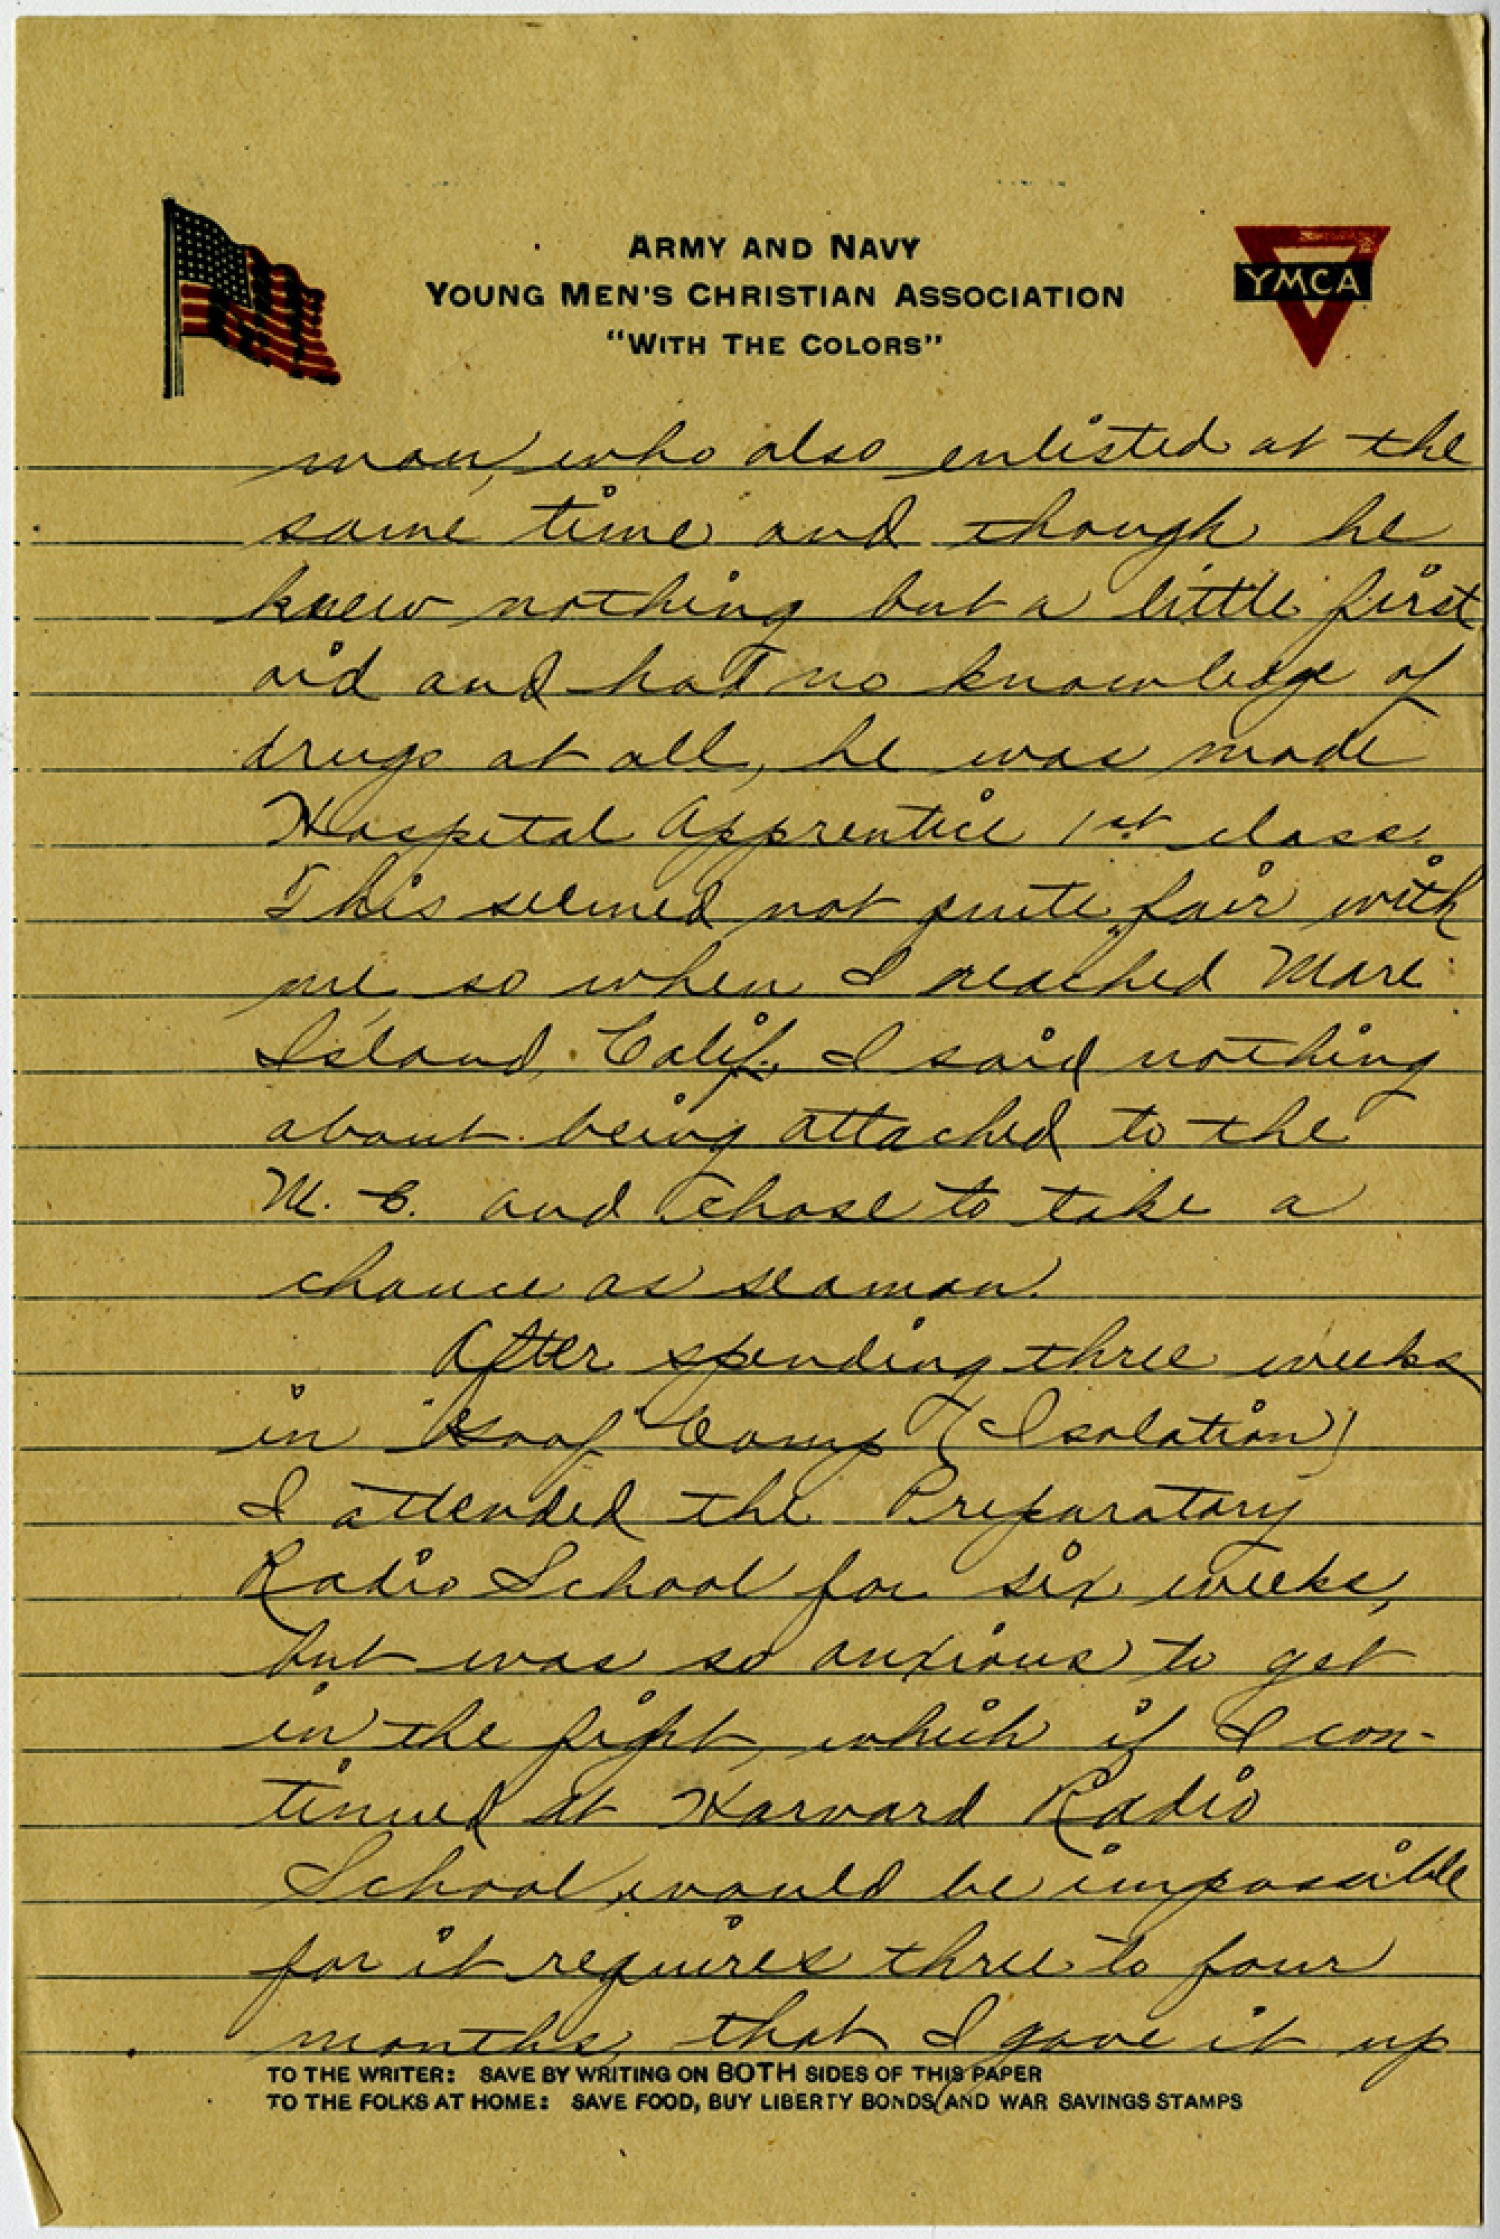 ARMY AND NAVY
YOUNG MEN'S CHRISTIAN ASSOCIATION
"WITH THE COLORS"
YMCA
man, who also enlisted at the
same time and though he
knew nothing but a little first
aid and had no knowledge of
drugs at all, he was made
Hospital Apprentice 1st class.
This seemed not quite fair with
me, so when I reached Mare
Island, Calif., I said nothing
about being attached to the
M. C. and chose to take a
chance as seaman.
After spending three weeks
in "Goof" Camp (Isolation)
I attended the Preparatory
Radio School for six weeks,
but was so anxious to get
in the fight, which if I con-
tinued at Harvard Radio
School, would be impossible
for it requires three to four
months, that I gave it up
TO THE WRITER: SAVE BY WRITING ON BOTH SIDES OF THIS PAPER
TO THE FOLKS AT HOME: SAVE FOOD, BUY LIBERTY BONDS AND WAR SAVINGS STAMPS